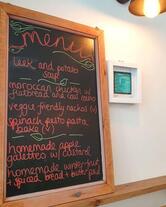 menu
leek and potato
soup
maroccan chicken w/
flatbread and
veggie friendly nachos (v)
spinach pasta
bake (v)
homemade apple
galettes w/ custard
homemade winter fruit
+ spiced bread + butter pud